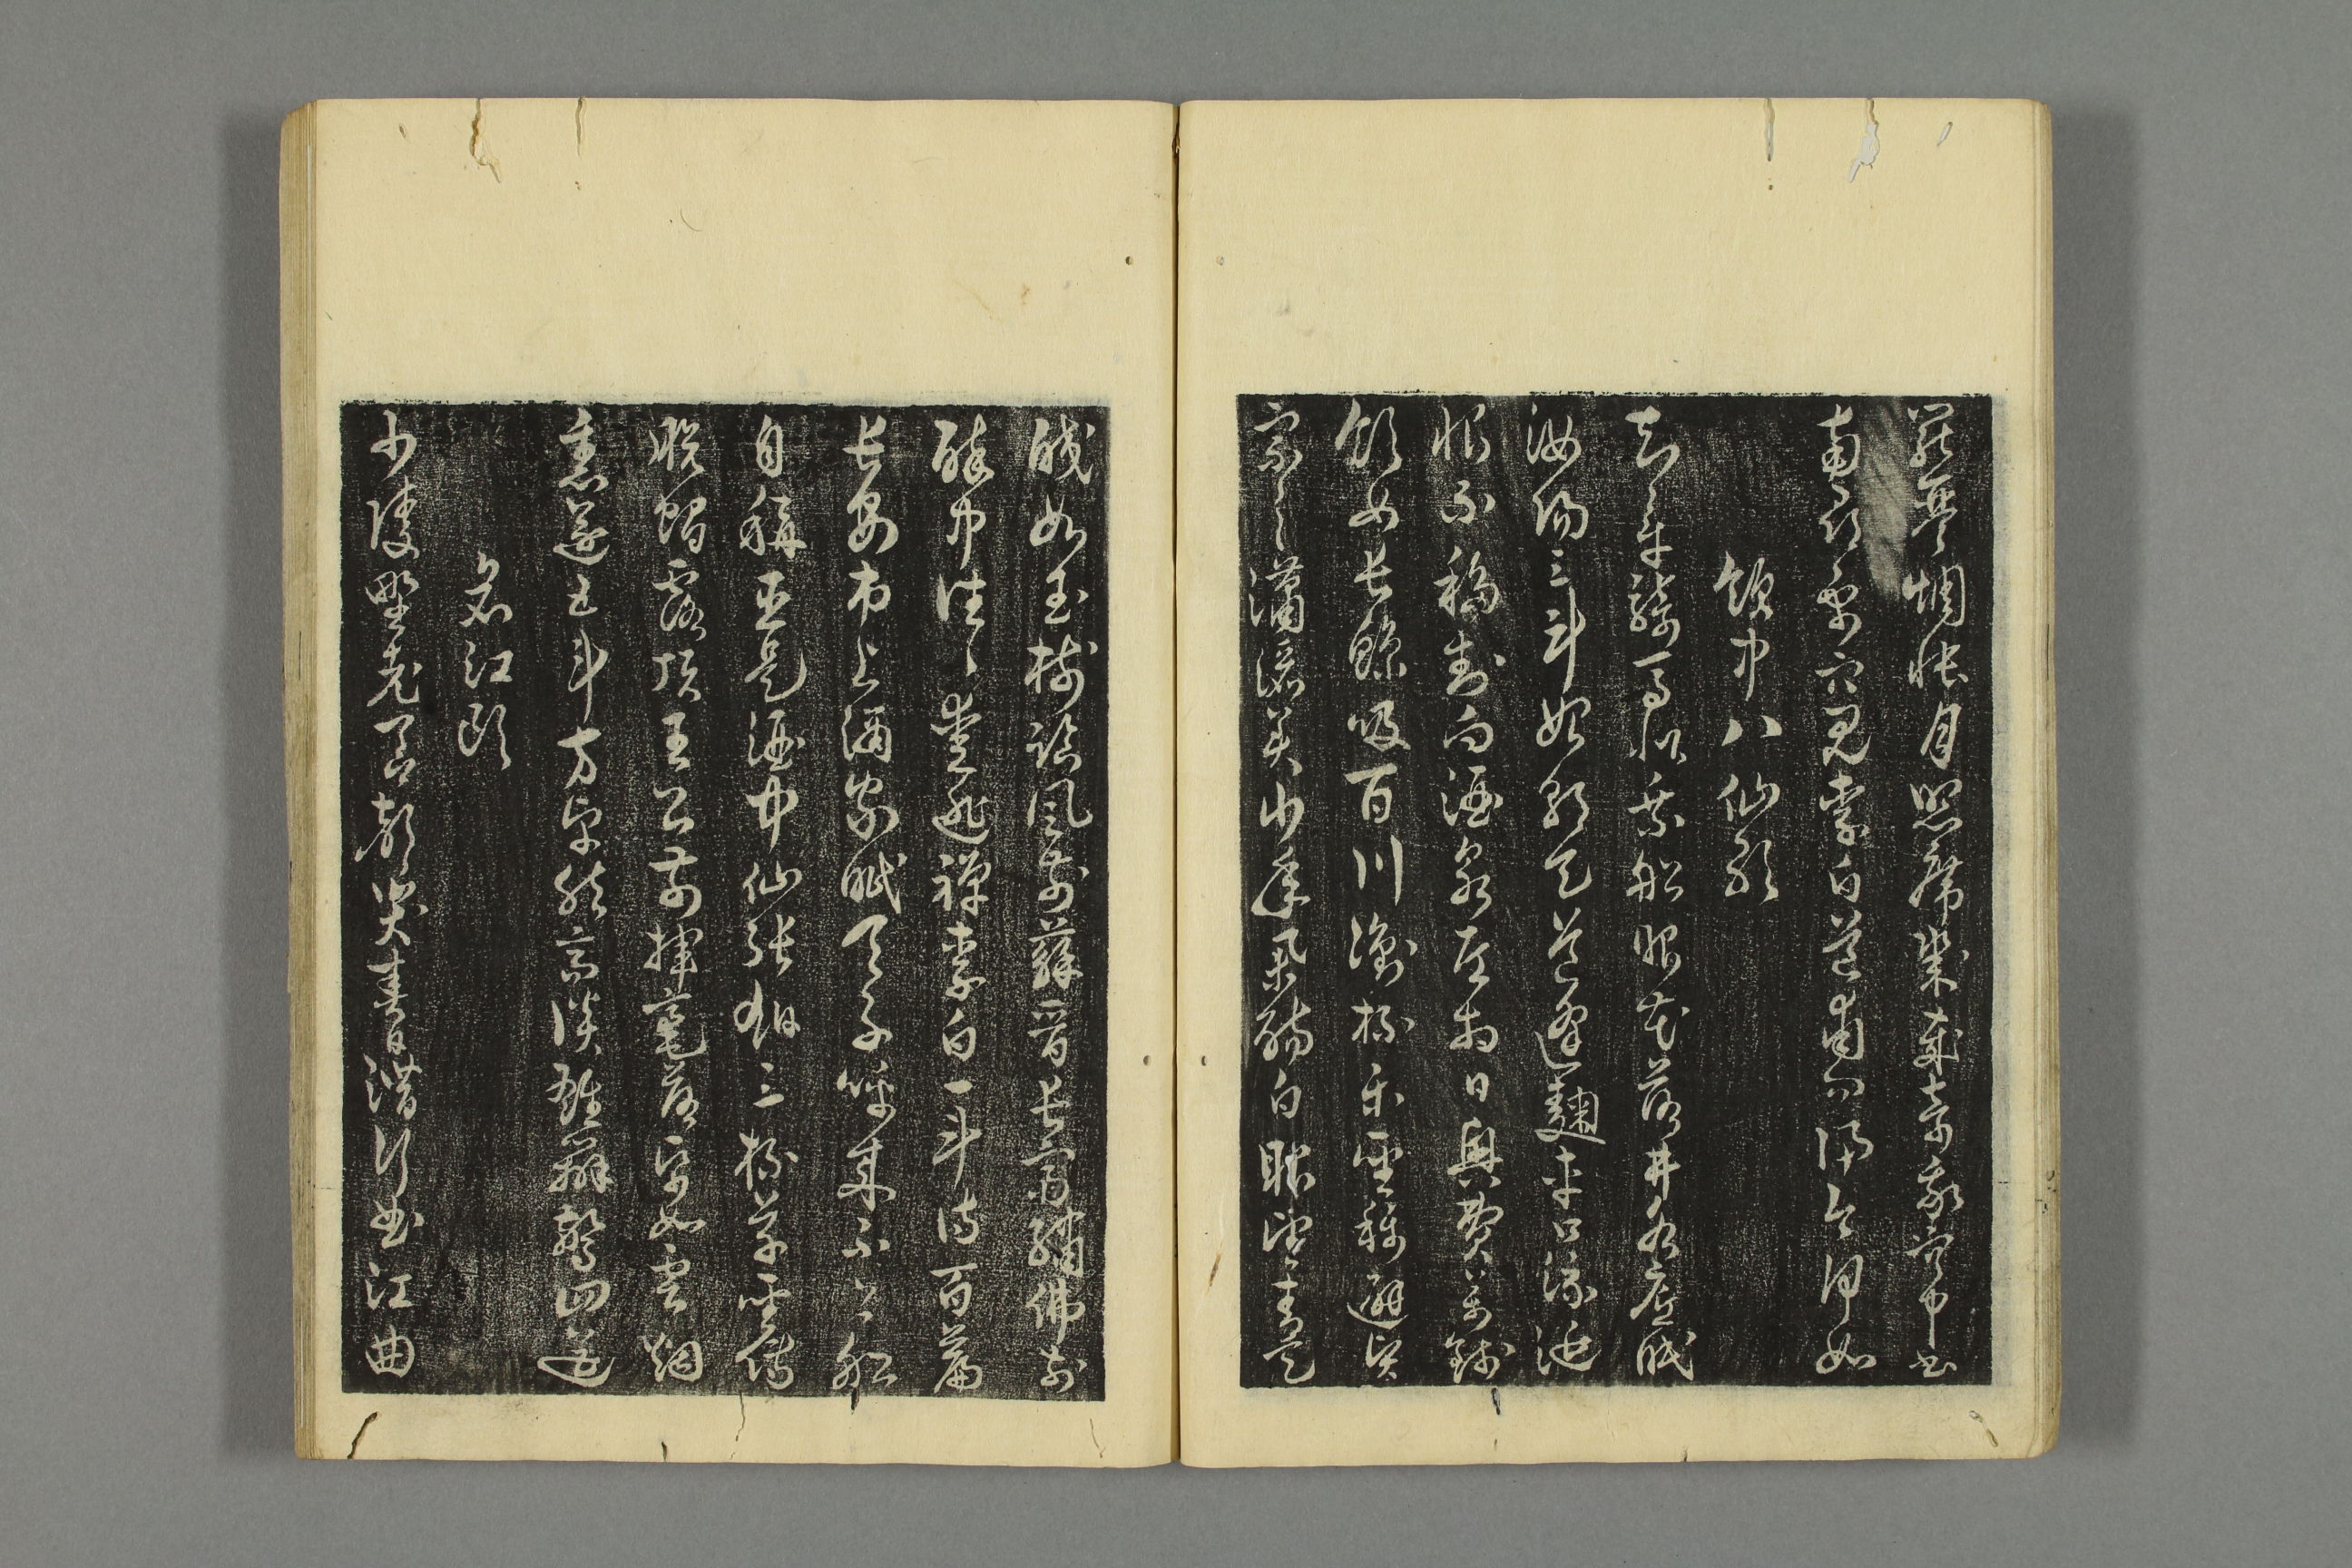 罷琴惆悵月照席幾歲寄我空中書
南尋禹穴見李白道甫問訊今何如
飲中八仙歌
知章騎馬似乘船眼花落井水底眠
汝陽三斗始朝天道逢麴車口流涎
恨不移封向酒泉左相日興費萬錢
飲如長鯨吸百川銜杯樂聖稱避賢
宗之瀟洒美少年舉觴白眼望青天
皎如玉樹臨風前蘇晉長齋繡佛前
醉中往往愛逃禪李白一斗詩百篇
長安市上酒家眠天子呼來不上船
自稱臣是酒中仙張旭三杯草聖傳
脫帽露頂王公前揮毫落紙如雲煙
焦遂五斗方卓然高談雄辯驚四筵
哀江頭
少陵野老吞聲哭春日潛行曲江曲